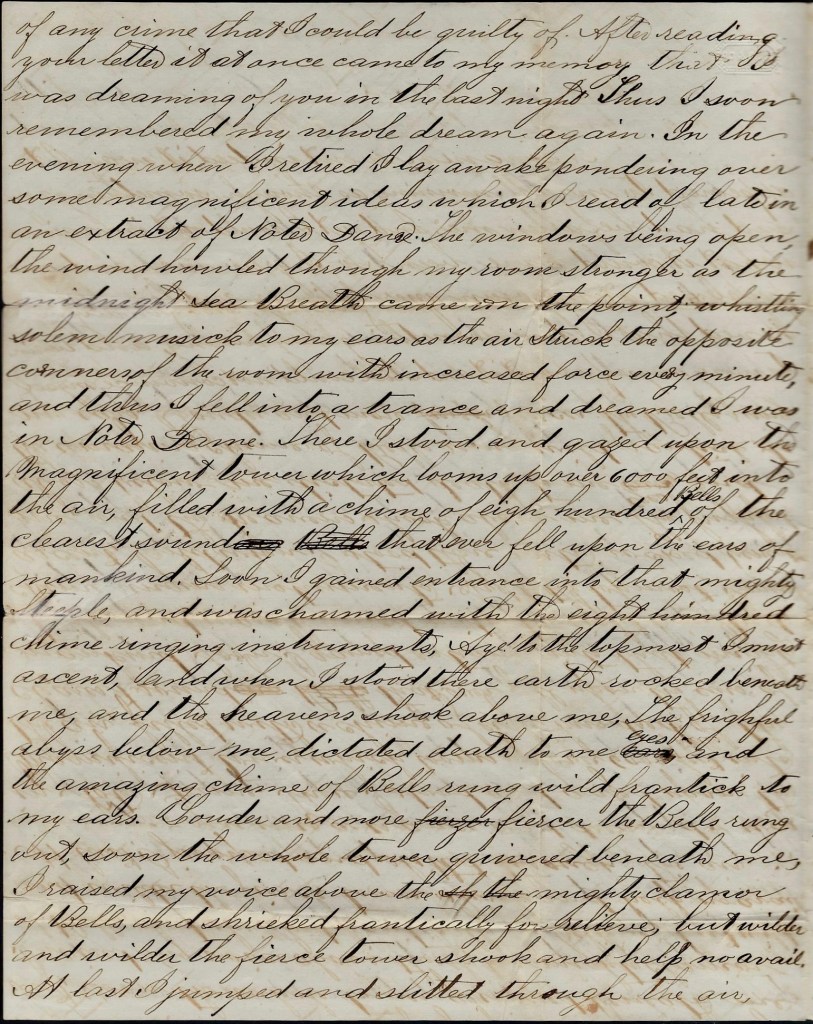 of any crime that I could be guilty of. After reading
your letter it at once came to my memory that I
was dreaming of you in the last night Thus I soon
remembered my whole dream again. In the
evening when I retired I lay awake pondering over
some magnificent ideas which I read of late in
an extract of Noter Dame. The windows being open,
the wind howled through my room stronger as the
midnight sea Breath came on the point, whistling
solem musick to my ears as the air struck the opposite
corners of the room with increased force every minute,
and thus I fell into a trance and dreamed I was
in Noter Dame. There I stood and gazed upon the
Magnificent tower which looms up over 6000 feet into
the air, filled with a chime of eigh hundred Bells of the
clearest sounding Bells that ever fell upon the ears of
mankind. Soon I gained entrance into that mighty
Steeple, and was charmed with the eight hundred
chime ringing instruments, Aye! to the topmost I must
ascent, and when I stood there earth rocked beneath
me, and the heavens shook above me, The frighful
abyss below me, dictated death to me eyes ears, and
the amazing chime of Bells rung wild frantick to
my ears. Louder and more fierzer fiercer the Bells rung
out, soon the whole tower quivered beneath me,
I raised my voice above the the mighty clamor
of Bells, and shrieked frantically for relieve; but wilder
and wilder the fierce tower shook and help no avail.
At last I jumped and slitted through the air,